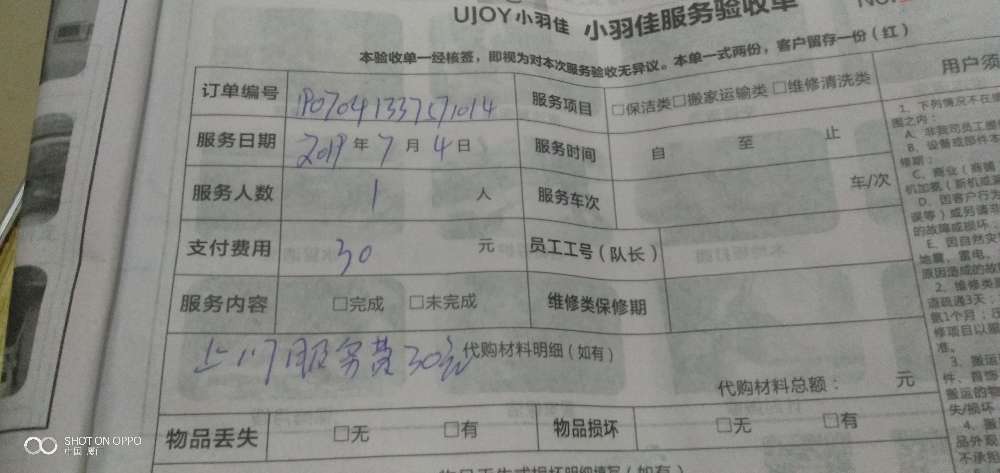 UJOY小羽佳 小羽佳服务验收单
本验收单一经核签，即视为对本次服务验收无异议。本单一式两份，客户留存一份（红）
订单编号 服务项目 □保洁类□搬家运输类 □维修清洗类
服务日期 2019年7月4日 服务时间 自 至 止
服务人数 1 人 服务车次 车/次
支付费用 30 元 员工工号（队长）
服务内容 □完成 □未完成 维修类保修期
上门服务费30元 代购材料明细（如有）
代购材料总额： 元
物品丢失 □无 □有 物品损坏 □无 □有
用户须
1、下列情况不在
围之内：
A、非我司员工
B、设备或部件
修期；
C、商业（商铺
机加氨（新机或
D、因客户行为
误等）或另请
的故障或损坏；
E、因自然灾
地震、雷电、
原因造成的故
2、维修类
道疏通3天；
氨1个月；
修项目以服
准。
3、搬运
件、首饰
搬运的物
失/损坏
4、搬
品外观
不承担
SHOT ON OPPO